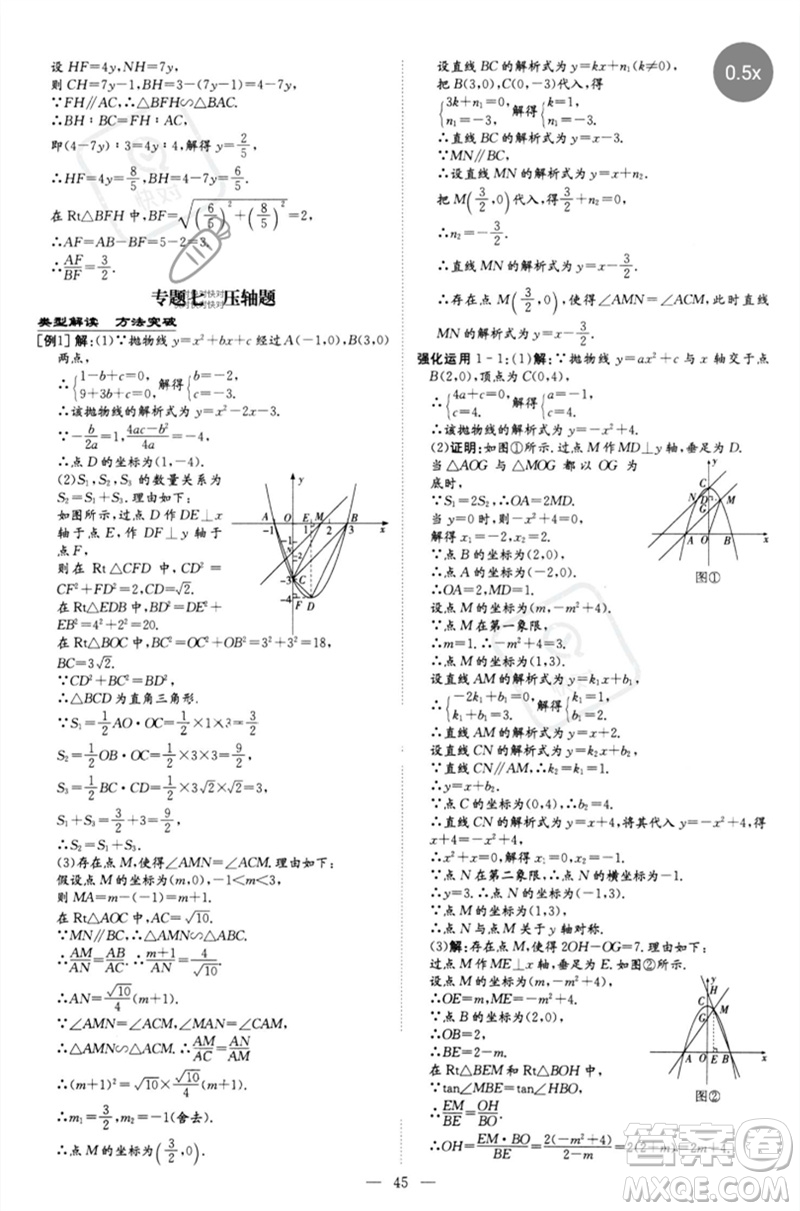 设 HF=4y,NH=7y,
则 CH=7y-3y=4y,BH=4-7y,
∵FH∥AC,∴△BFH∽△BAC.
∴BH∶BC=FH∶AC,
即(4-7y)∶3=4y∶4,解得 y=2/5,
∴HF=4y=8/5,BH=4-7y=6/5.
在 Rt△BFH 中,BF=√((6/5)²+(8/5)²)=2,
∴AF=AB-BF=5-2=3,
∴AF/BF=3/2.
专题七 压轴题
类型解读 方法突破
[例1]解:(1)∵抛物线 y=x²+bx+c 经过 A(-1,0),B(3,0)
两点,
∴{1-b+c=0, 9+3b+c=0, 解得{b=-2, c=-3.
∴该抛物线的解析式为 y=x²-2x-3.
∵-b/2a=1,(4ac-b²)/4a=-4,
∴点 D 的坐标为(1,-4).
(2)S₁,S₂,S₃ 的数量关系为
S₂=S₁+S₃. 理由如下:
如图所示,过点 D 作 DE⊥x
轴于点 E,作 DF⊥y 轴于
点 F,
在 Rt△CFD 中,CD²=
CF²+DF²=1²+1²=2.
在 Rt△EDB 中,BD²=DE²+
BE²=4²+2²=20.
在 Rt△BOC 中,BC²=OC²+OB²=3²+3²=18,
BC=3√2.
∵CD²+BC²=BD²,
∴△BCD 为直角三角形.
∵S₁=1/2AO·OC=1/2×1×3=3/2
S₂=1/2OB·OC=1/2×3×3=9/2,
S₃=1/2BC·CD=1/2×3√2×√2=3,
S₁+S₃=3/2+3=9/2,
∴S₂=S₁+S₃.
(3)存在点 M,使得∠AMN=∠ACM.理由如下:
假设点 M 的坐标为(m,0),-1<m<3,
则 MA=m-(-1)=m+1.
在 Rt△AOC 中,AC=√10.
∵MN∥BC,∴△AMN∽△ABC.
∴AM/AN=AB/AC.∴(m+1)/AN=4/√10,
∴AN=√10/4(m+1).
∵∠AMN=∠ACM,∠MAN=∠CAM,
∴△AMN∽△ACM.∴AM/AC=AN/AM.
∴(m+1)²=√10×√10/4(m+1).
∴m₁=3/2,m₂=-1(舍去).
∴点 M 的坐标为(3/2,0).
y
A O E M B
-1 1 2 3 x
-1
N
-3 C
-4 F D
设直线 BC 的解析式为 y=kx+n₁(k≠0),
把 B(3,0),C(0,-3)代入,得
{3k+n₁=0, n₁=-3, 解得{k=1, n₁=-3.
∴直线 BC 的解析式为 y=x-3.
∵MN∥BC,
∴设直线 MN 的解析式为 y=x+n₂.
把 M(3/2,0)代入,得 3/2+n₂=0.
∴n₂=-3/2.
∴直线 MN 的解析式为 y=x-3/2.
∴存在点 M(3/2,0),使得∠AMN=∠ACM,此时直线
MN 的解析式为 y=x-3/2.
强化运用 1-1:(1)解:∵抛物线 y=ax²+c 与 x 轴交于点
B(2,0),顶点为 C(0,4),
∴{4a+c=0, c=4. 解得{a=-1, c=4.
∴该抛物线的解析式为 y=-x²+4.
(2)证明:如图①所示.过点 M 作 MD⊥y 轴,垂足为 D.
当 △AOG 与 △MOG 都以 OG 为
底时,
∵S₁=2S₂,∴OA=2MD.
当 y=0 时,则-x²+4=0,
解得 x=±2.
∵点 B 的坐标为(2,0),
∴点 A 的坐标为(-2,0).
∴OA=2,MD=1.
设点 M 的坐标为(m,-m²+4).
∵点 M 在第一象限,
∴m=1.∴-m²+4=3.
∴点 M 的坐标为(1,3).
设直线 AM 的解析式为 y=k₁x+b₁.
∴{-2k₁+b₁=0, k₁+b₁=3, 解得{k₁=1, b₁=2.
∴直线 AM 的解析式为 y=x+2.
设直线 CN 的解析式为 y=k₂x+b₂.
∵直线 CN∥AM,∴k₂=k₁=1.
∴y=x+b₂.
∵点 C 的坐标为(0,4),∴b₂=4.
∴直线 CN 的解析式为 y=x+4,将其代入 y=-x²+4,得
x+4=-x²+4,
∴x²+x=0,解得 x₁=0,x₂=-1.
∵点 N 在第二象限,∴点 N 的横坐标为-1.
∴y=3.∴点 N 的坐标为(-1,3).
∵点 M 的坐标为(1,3),
∴点 N 与点 M 关于 y 轴对称.
(3)解:存在点 M,使得 2OH-OG=7. 理由如下:
过点 M 作 ME⊥x 轴,垂足为 E. 如图②所示.
设点 M 的坐标为(m,-m²+4),
∴OE=m,ME=-m²+4.
∵点 B 的坐标为(2,0),
∴OB=2.
∴BE=2-m.
在 Rt△BEM 和 Rt△HBO 中,
∵tan∠MBE=tan∠HBO,
∴EM/BE=OH/BO.
∴OH=EM·BO/BE=2(-m²+4)/(2-m)=2(2+m)=2m+4.
y
C
D M
G
A O B x
图①
y
H
C
G M
A O E B x
图②
45
0.5x
快对
答案卷